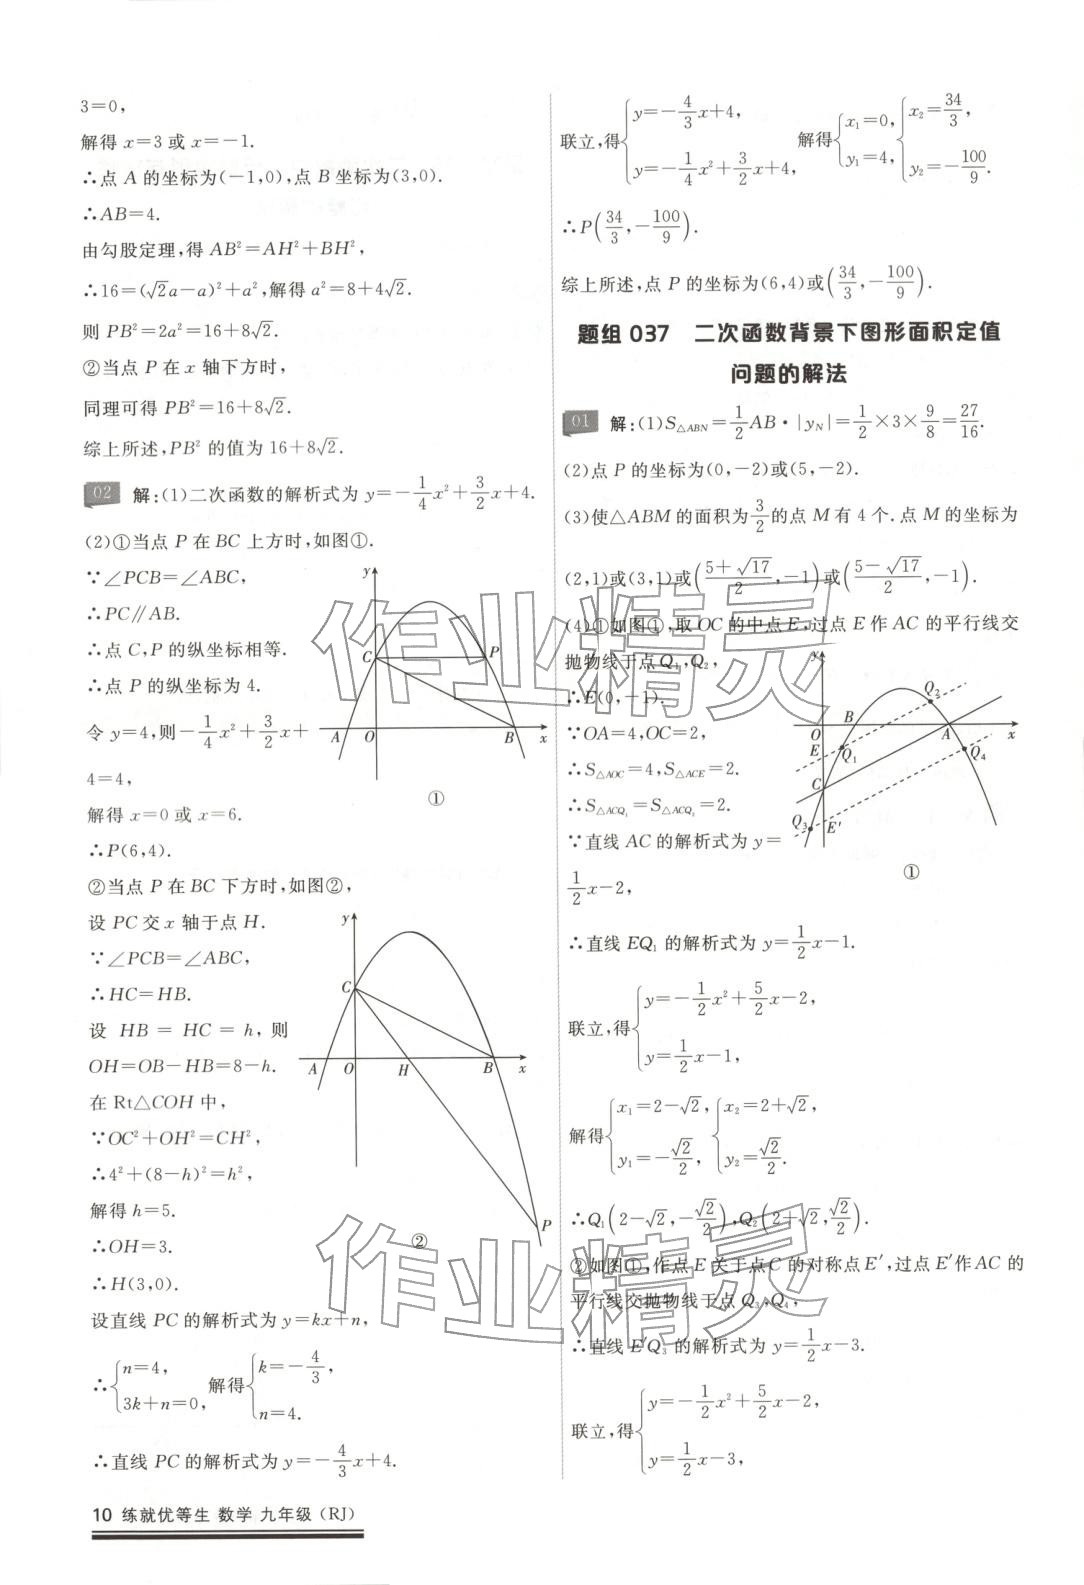 3=0，
解得 x=3 或 x=-1.
∴点 A 的坐标为(-1,0)，点 B 坐标为(3,0).
∴AB=4.
由勾股定理，得 AB²=AH²+BH²，
∴16=(√2a-a)²+a²，解得 a²=8+4√2.
则 PB²=2a²=16+8√2.
②当点 P 在 x 轴下方时，
同理可得 PB²=16+8√2.
综上所述，PB² 的值为 16+8√2.
02 解：(1)二次函数的解析式为 y=-1/4x²+3/2x+4.
(2)①当点 P 在 BC 上方时，如图①.
∵∠PCB=∠ABC，
∴PC∥AB.
∴点 C，P 的纵坐标相等.
∴点 P 的纵坐标为 4.
令 y=4，则-1/4x²+3/2x+
4=4，
解得 x=0 或 x=6.
∴P(6,4).
y
C
P
A
O
B
x
①
②当点 P 在 BC 下方时，如图②，
设 PC 交 x 轴于点 H.
∵∠PCB=∠ABC，
∴HC=HB.
设 HB = HC = h，则
OH=OB-HB=8-h.
在 Rt△COH 中，
∵OC²+OH²=CH²，
∴4²+(8-h)²=h²，
解得 h=5.
∴OH=3.
∴H(3,0).
y
C
A
O
H
B
x
P
②
设直线 PC 的解析式为 y=kx+n，
∴{n=4, 3k+n=0, 解得{k=-4/3, n=4.
∴直线 PC 的解析式为 y=-4/3x+4.
联立，得{y=-4/3x+4, y=-1/4x²+3/2x+4, 解得{x₁=0, y₁=4, {x₂=34/3, y₂=-100/9.
∴P(34/3,-100/9).
综上所述，点 P 的坐标为(6,4)或(34/3,-100/9).
题组 037 二次函数背景下图形面积定值
问题的解法
01 解：(1)S△ABN=1/2AB·|yN|=1/2×3×9/8=27/16.
(2)点 P 的坐标为(0,-2)或(5,-2).
(3)使△ABM 的面积为3/2的点 M 有 4 个. 点 M 的坐标为
(2,1)或(3,1)或((5+√17)/2,-1)或((5-√17)/2,-1).
(4)①如图①，取 OC 的中点 E，过点 E 作 AC 的平行线交
抛物线于点 Q₁，Q₂，
∴E(0,-1).
∵OA=4，OC=2，
∴S△AOC=4，S△ACE=2.
∴S△ACQ₁=S△ACQ₂=2.
∵直线 AC 的解析式为 y=
1/2x-2，
y
O
B
A
x
E
Q₁
Q₂
C
Q₃
E′
Q₄
①
∴直线 EQ₁ 的解析式为 y=1/2x-1.
联立，得{y=-1/2x²+5/2x-2, y=1/2x-1,
解得{x₁=2-√2, y₁=-√2/2, {x₂=2+√2, y₂=√2/2.
∴Q₁(2-√2,-√2/2)，Q₂(2+√2,√2/2).
②如图①，作点 E 关于点 C 的对称点 E′，过点 E′作 AC 的
平行线交抛物线于点 Q₃，Q₄，
∴直线 E′Q₃ 的解析式为 y=1/2x-3.
联立，得{y=-1/2x²+5/2x-2, y=1/2x-3,
10 练就优等生 数学 九年级（RJ）
作业精灵
作业精灵